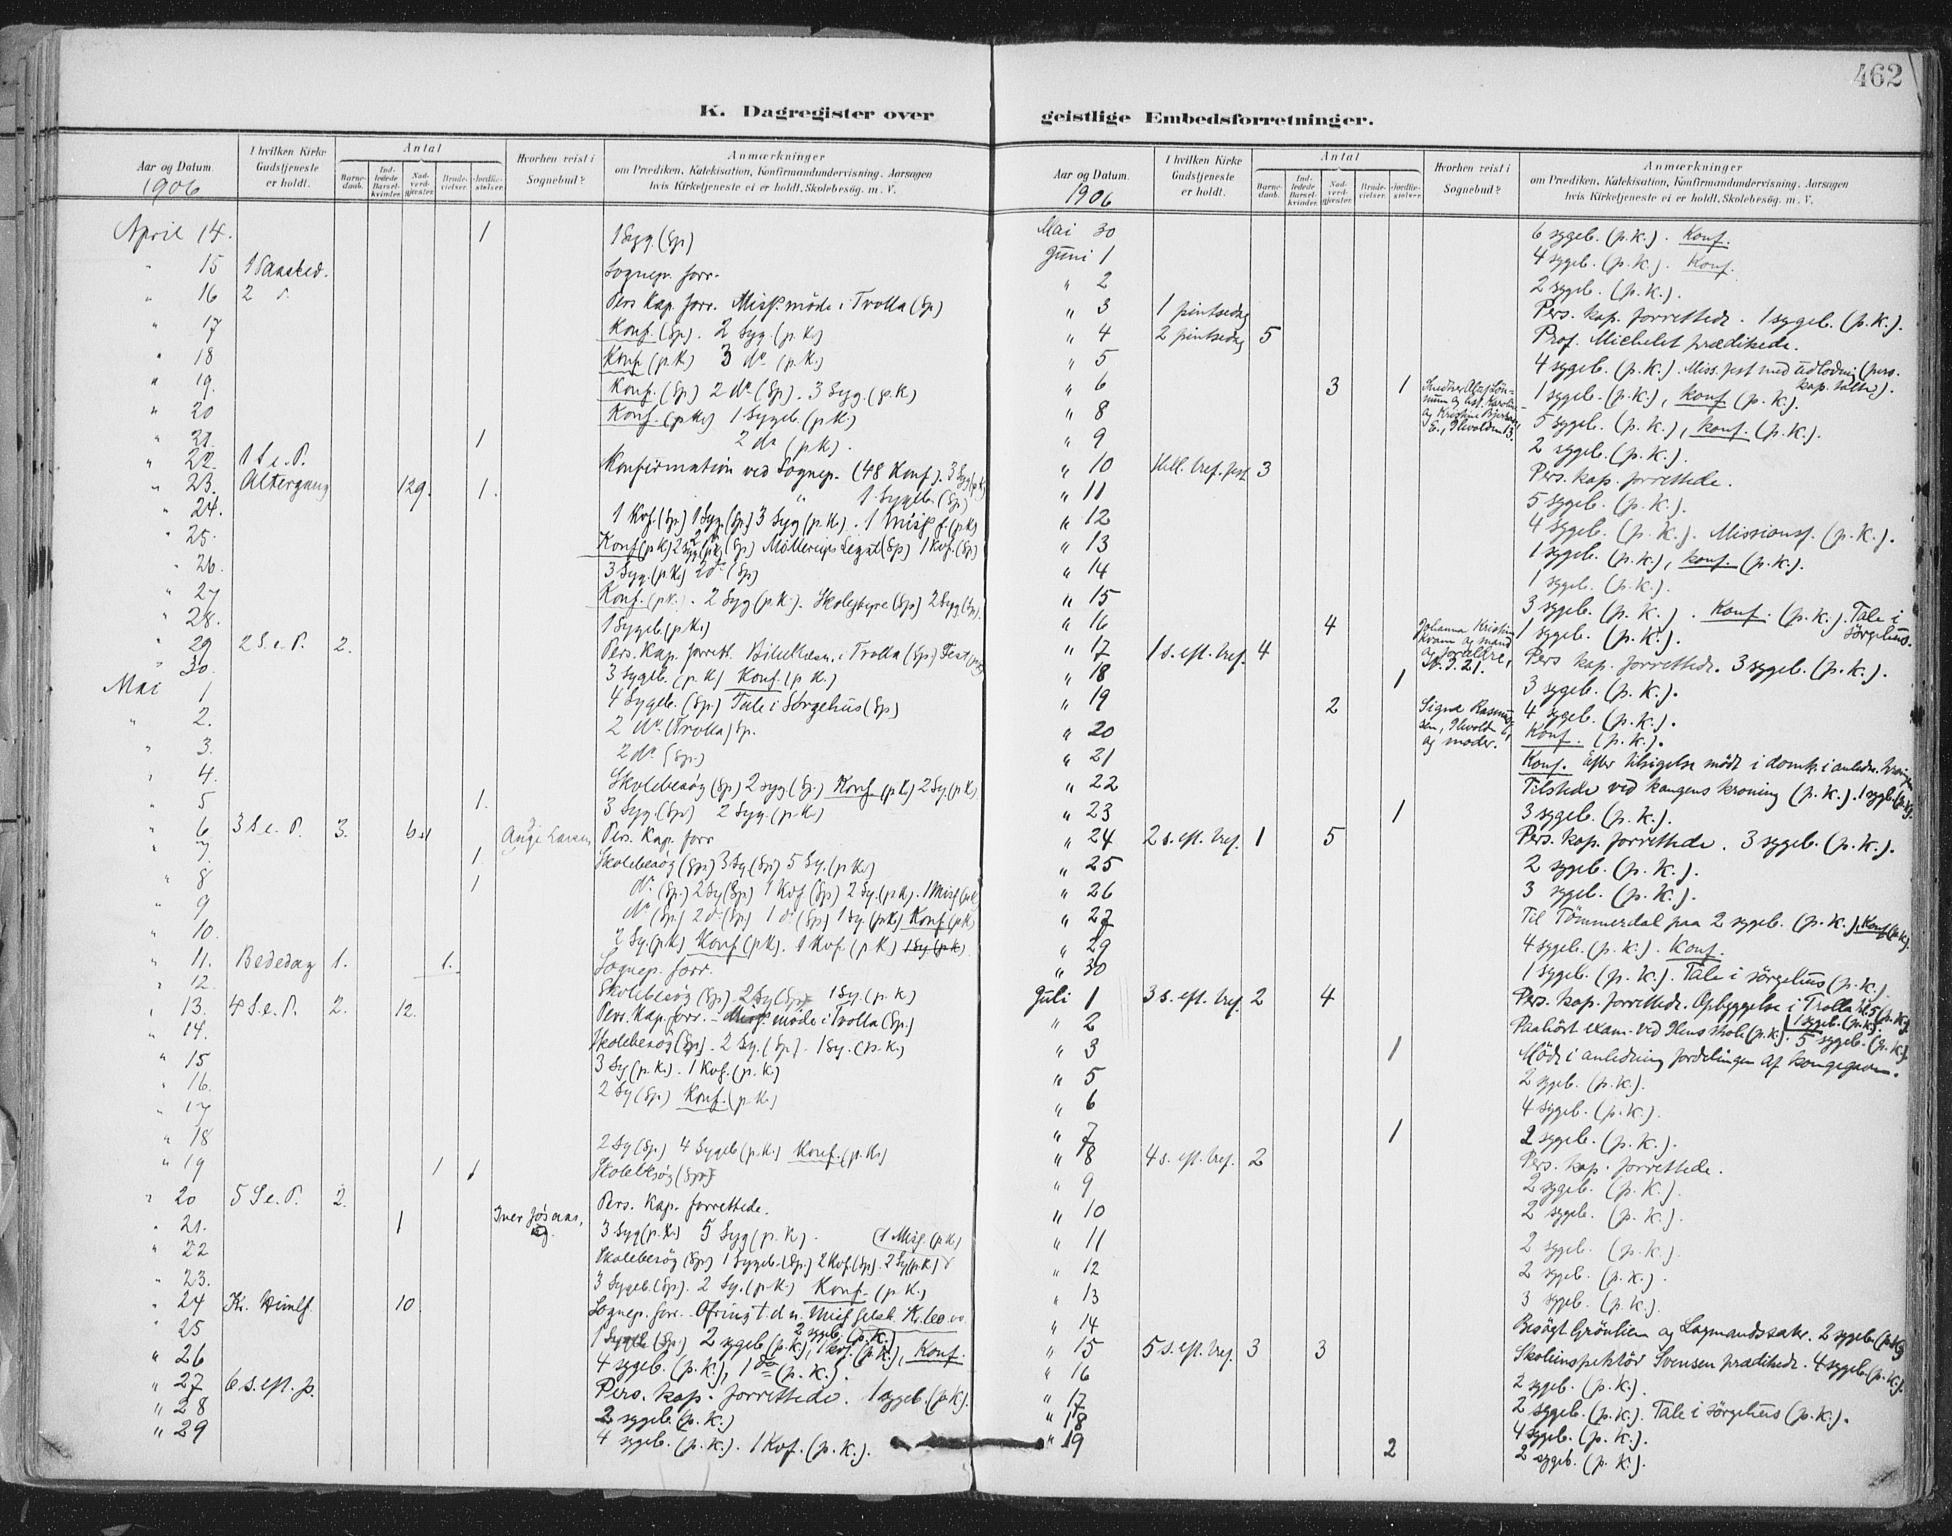 462
K. Dagregister over geistlige Embedsforretninger.
Aar og Datum.
1906
I hvilken Kirke Gudstjeneste er holdt.
Antal
Barnedaab.
Indledede Barselkvinder.
Nadverdgjester.
Brudevielser.
Jordfæstelser.
Hvorhen reist i Sognebud?
Anmærkninger
om Prædiken, Katekisation, Konfirmandundervisning. Aarsagen
hvis Kirketjeneste ei er holdt. Skolebesög. m. V.
April 14. 1 1 Syg. (Sp)
" 15 Sognepr. forr.
" 16 2 Pers. Kap. forr. Miss. møde i Trolla (Sp)
" 17 Konf. (Sp). 2 Syg. (p. K.)
" 18 Konf. (p. K.) 3 do (p. K.)
" 19. Konf. (Sp) 2 do (Sp). 3 Syg. (p. K)
" 20 Konf. (p K.) 1 Sygeb. (p K.)
" 21. 1 2 do (p K.).
" 22. 1 S. e. P. Konfirmation ved Sognepr. (48 Konf). 3 Syg (p K)
" 23. Altergang 129. 1. 1 Sygeb. (Sp)
" 24. 1 Kof. (Sp) 1 Syg. (Sp) 3 Syg (p. K.). 1 Miss f (p K)
" 25. Konf (p K) 2 Syg (Sp) Möllerups Legat (Sp) 1 Kof. (Sp)
" 26. 3 Syg. (p K.) 2 do (Sp)
" 27 Konf. (p K.). 2 Syg (p. K.). Skolestyre (Sp) 2 Syg (Sp)
" 28. 1 Sygeb. (p K.)
" 29 2 S. e. P. 2. Pers. Kap. forrett. Bibellæsn. i Trolla (Sp)
" 30. 3 Sygeb. (p K) Konf. (p K.)
Mai 1 4 Sygeb. (Sp) Tale i Sørgehus (Sp)
" 2. 2 do. (Trolla) Sp.
" 3. 2 do (Sp.)
" 4. Skolebesøg (Sp) 2 Syg (Sp.) Konf (p K) 2 Sy. (p K)
" 5 1. 3 Syg. (Sp) 2 Syg. (p K.)
" 6. 3 S. e. P. 3. Pers. Kap. forr
" 7. 1 Skolebesøg (Sp) 3 Sy (Sp) 5 Sy. (p K.)
" 8 1 do. (Sp.) 2 Sy (Sp) 1 Kof (Sp) 2 Sy. (p K). 1 Miss (p K)
" 9 do (Sp) 2 do (Sp) 1 do (Sp) 1 Sy. (p K) Konf (p K)
" 10. 2 Sy. (p K) Konf (p K). 1 Kof. (p K) 1 Sy (p K).
" 11. Bededag 1. 1. Sognep. forr.
" 12. Skolebesøg (Sp). 2 Sy (Sp) 1 Sy. (p. K)
" 13. 4 S. e. P. 2. 12. Pers. Kap. forr. Miss. møde i Trolla (Sp.)
" 14. Skolebesøg (Sp). 2 Sy. (Sp). 1 Sy. (p. K.)
" 15 3 Sy (p. K.). 1 Kof. (p. K.)
" 16. 2 Sy (Sp) Konf. (p K.)
" 17
" 18 2 Sy (Sp) 4 Sygeb (p. K.) Konf. (p. K.)
" 19 1 1 Skolebesøg (Sp)
" 20 5 S. e. P. 2. Pers. Kap. forrettede.
" 21. 1 3 Syg (p. K.) 5 Syg (p. K). (1 Miss. (p K)
" 22 Skolebesøg (Sp) 1 Sygeb. (Sp.) 2 Kof. (Sp). 2 Sy (p K)
" 23. 3 Sygeb. (Sp). 2 Sy. (p K.) Konf. (p K.)
" 24 Kr. Himlf. 10 Sognep. forr. Ofring t. d. n. Miss. selsk. Kr. 100.00
" 25 1 Sygeb (Sp.) 2 sygeb (p. K.), 1 kof. (p. K.), Konf.
" 26 4 sygeb. (p. K.), 1 do (p. K.).
" 27 6 s. eft. p. Pers. kap. forrettede. 1 sygeb. (p K).
" 28 2 sygeb. (p. K.)
" 29 4 sygeb. (p. K.). 1 Kof. (p. K.).
Aar og Datum.
1906
I hvilken Kirke Gudstjeneste er holdt.
Antal
Barnedaab.
Indledede Barselkvinder.
Nadverdgjester.
Brudevielser.
Jordfæstelser.
Hvorhen reist i Sognebud?
Anmærkninger
om Prædiken, Katekisation, Konfirmandundervisning. Aarsagen
hvis Kirketjeneste ei er holdt. Skolebesög. m. V.
Mai 30 6 sygeb. (p. K.). Konf.
Juni 1 4 sygeb. (p. K.). Konf.
" 2 2 sygeb. (p. K.).
" 3 1 pintsedag Pers. kap. forrettede. 1 sygeb. (p. K.).
" 4 2 pintsedag 5 Prof. Michelet prædikede.
" 5 4 sygeb. (p. K.). Miss. fest med udlodning (pers. kap. talte).
" 6 3 1 1 sygeb. (p. K.), konf. (p. K.).
" 8 5 sygeb. (p. K.), konf. (p. K.).
" 9 2 sygeb. (p. K.).
" 10 Hell. tref. fest 3 Pers. kap. forrettede.
" 11 5 sygeb. (p. K.).
" 12 4 sygeb. (p. K.). Missionsf. (p. K.).
" 13 1 sygeb. (p. K.), konf. (p. K.).
" 14 1 sygeb. (p. K.).
" 15 3 sygeb. (p. K.). Konf. (p. K.). Tale i sørgehus.
" 16 4 Johanna Kristin Kvam og mand og forældre, 1 sygeb. (p. K.).
" 17 1 s. eft. tref. 4 Pers kap. forrettede. 3 sygeb. (p. K.).
" 18 1 3 sygeb. (p. K.).
" 19 2 Signe Rasmussen, Ilevolden og moder. 4 sygeb. (p. K.).
" 20 Konf. (p. K.).
" 21 Konf. Efter tilsigelse mødt i domk. i anledn. kroning
" 22 Tilstede ved kongens kroning (p. K.). 1 sygeb. (p. K.).
" 23 1 3 sygeb. (p. K.).
" 24 2 s. eft. tref. 1 5 Pers. kap. forrettede. 3 sygeb. (p. K.).
" 25 2 sygeb. (p. K.).
" 26 3 sygeb. (p. K.).
" 27 Til Tømmerdal paa 2 sygeb. (p. K.), Konf (p. K).
" 29 4 sygeb. (p. K.). Konf.
" 30 1 sygeb. (p. K.). Tale i sørgehus (p. K.).
Juli 1 3 s. eft. tref. 2 4 Pers. kap. forrettede. Opbyggelse i Trolla (p. K.). 1 sygeb. (p. K.).
" 2 Paahørt exam. ved Ilens skole (p. K.). 5 sygeb. (p. K.).
" 3 1 Møde i anledning fordelingen af kongegaven.
" 5 2 sygeb. (p. K.).
" 6 4 sygeb. (p. K.).
" 7 1 2 sygeb. (p. K.).
" 8 4 s. eft. tref. 2 Pers. kap. forrettede.
" 9 2 sygeb. (p. K.).
" 10 2 sygeb. (p. K.).
" 11 2 sygeb. (p. K.).
" 12 2 sygeb. (p. K.).
" 13 3 sygeb. (p. K.).
" 14 Besøgt Grønlien og Lagmandssætr. 2 sygeb. (p. K.)
" 15 5 s. eft. tref. 3 3 Skoleinspektör Svensen prædikede. 4 sygeb. (p. K.).
" 16 2 sygeb. (p. K.).
" 17 2 sygeb. (p. K.). Tale i sørgehus (p. K.).
" 18 4 sygeb. (p. K.).
" 19 2 2 sygeb. (p. K.).